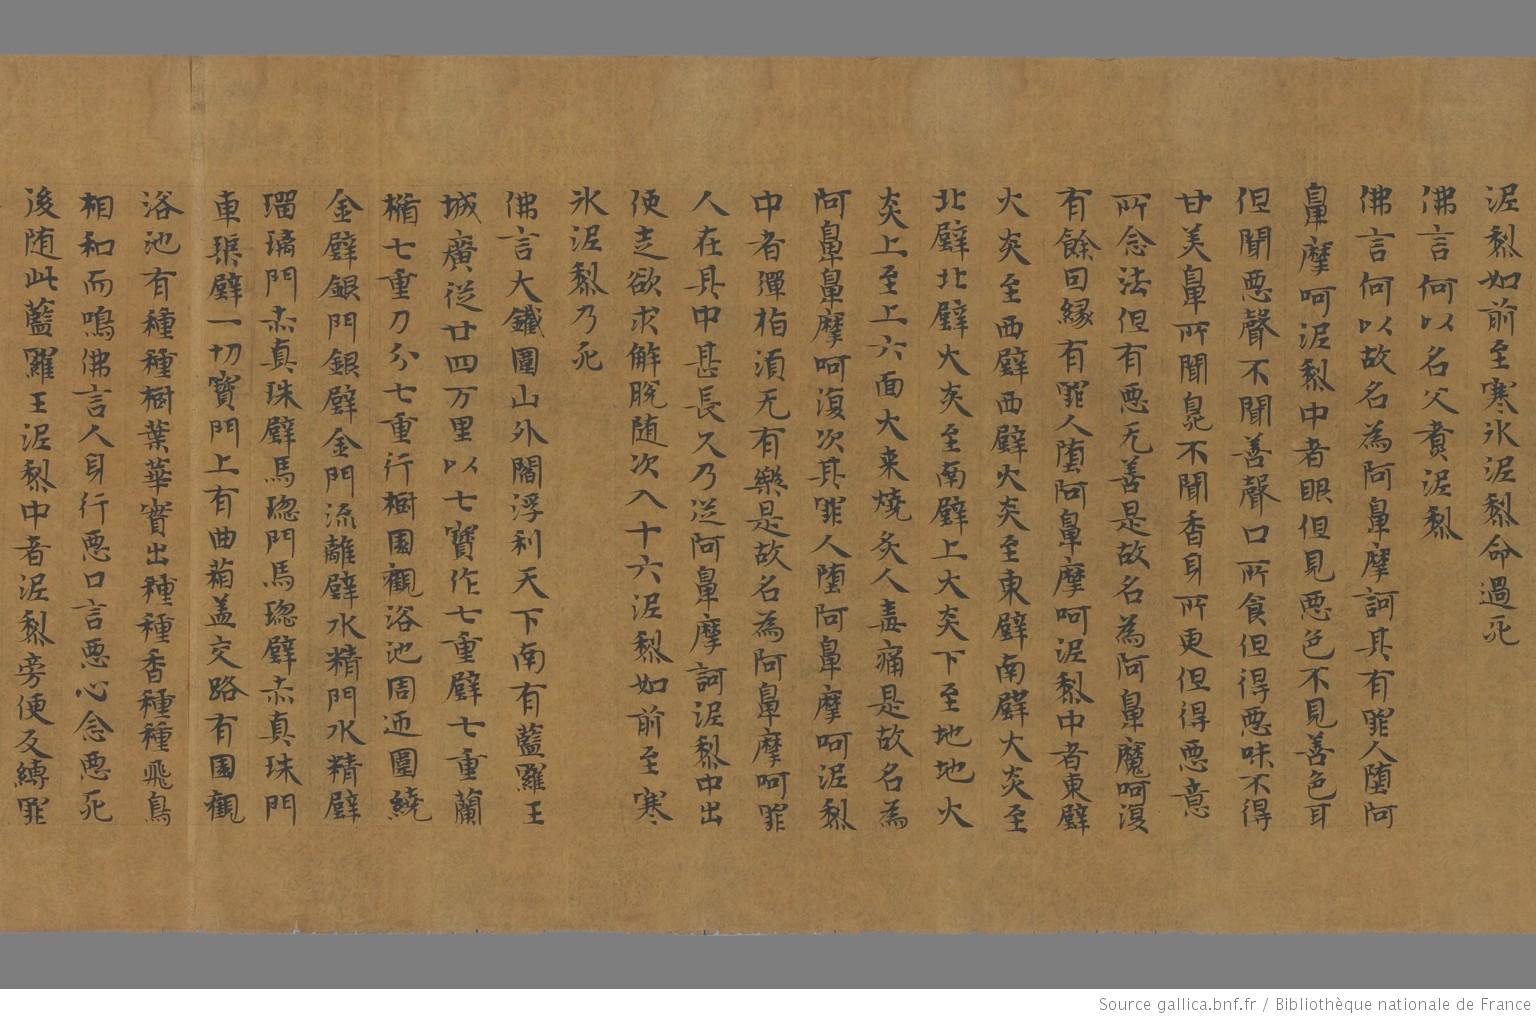 泥犁如前至寒氷泥犁命過死
佛言何以名父賷泥犁
佛言何以故名為阿鼻摩訶其有罪人墮阿
鼻摩呵泥犁中者眼但見惡色不見善色耳
但聞惡聲不聞善聲口所食但得惡味不得
甘美鼻所聞臭不聞香身所更但得惡意
所念法但有惡无善是故名為阿鼻魔呵復
有餘因緣有罪人墮阿鼻摩呵泥犁中者東壁
火炎至西壁西壁火炎至東壁南壁大炎至
北壁北壁火炎至南壁上大炎下至地地火
炎上至上六面大来燒炙人毒痛是故名為
阿鼻鼻摩呵復次其罪人墮阿鼻摩呵泥犁
中者彈指湏无有樂是故名為阿鼻摩呵罪
人在其中甚長久乃從阿鼻摩訶泥犁中出
便走欲求解脫随次入十六泥犁如前至寒
氷泥犁乃死
佛言大鐵圍山外閻浮利天下南有藍羅王
城廣從廿四万里以七寶作七重壁七重蘭
楯七重刀分七重行樹園觀浴池周迊圍繞
金壁銀門銀壁金門流離壁水精門水精壁
瑠璃門赤真珠壁馬瑙門馬瑙壁赤真珠門
車璖壁一切寶門上有曲箱盖交路有園觀
浴池有種種樹葉華實出種種香種種飛鳥
相和而鳴佛言人身行惡口言惡心念惡死
後随此藍羅王泥犁中者泥犁旁便反縛罪